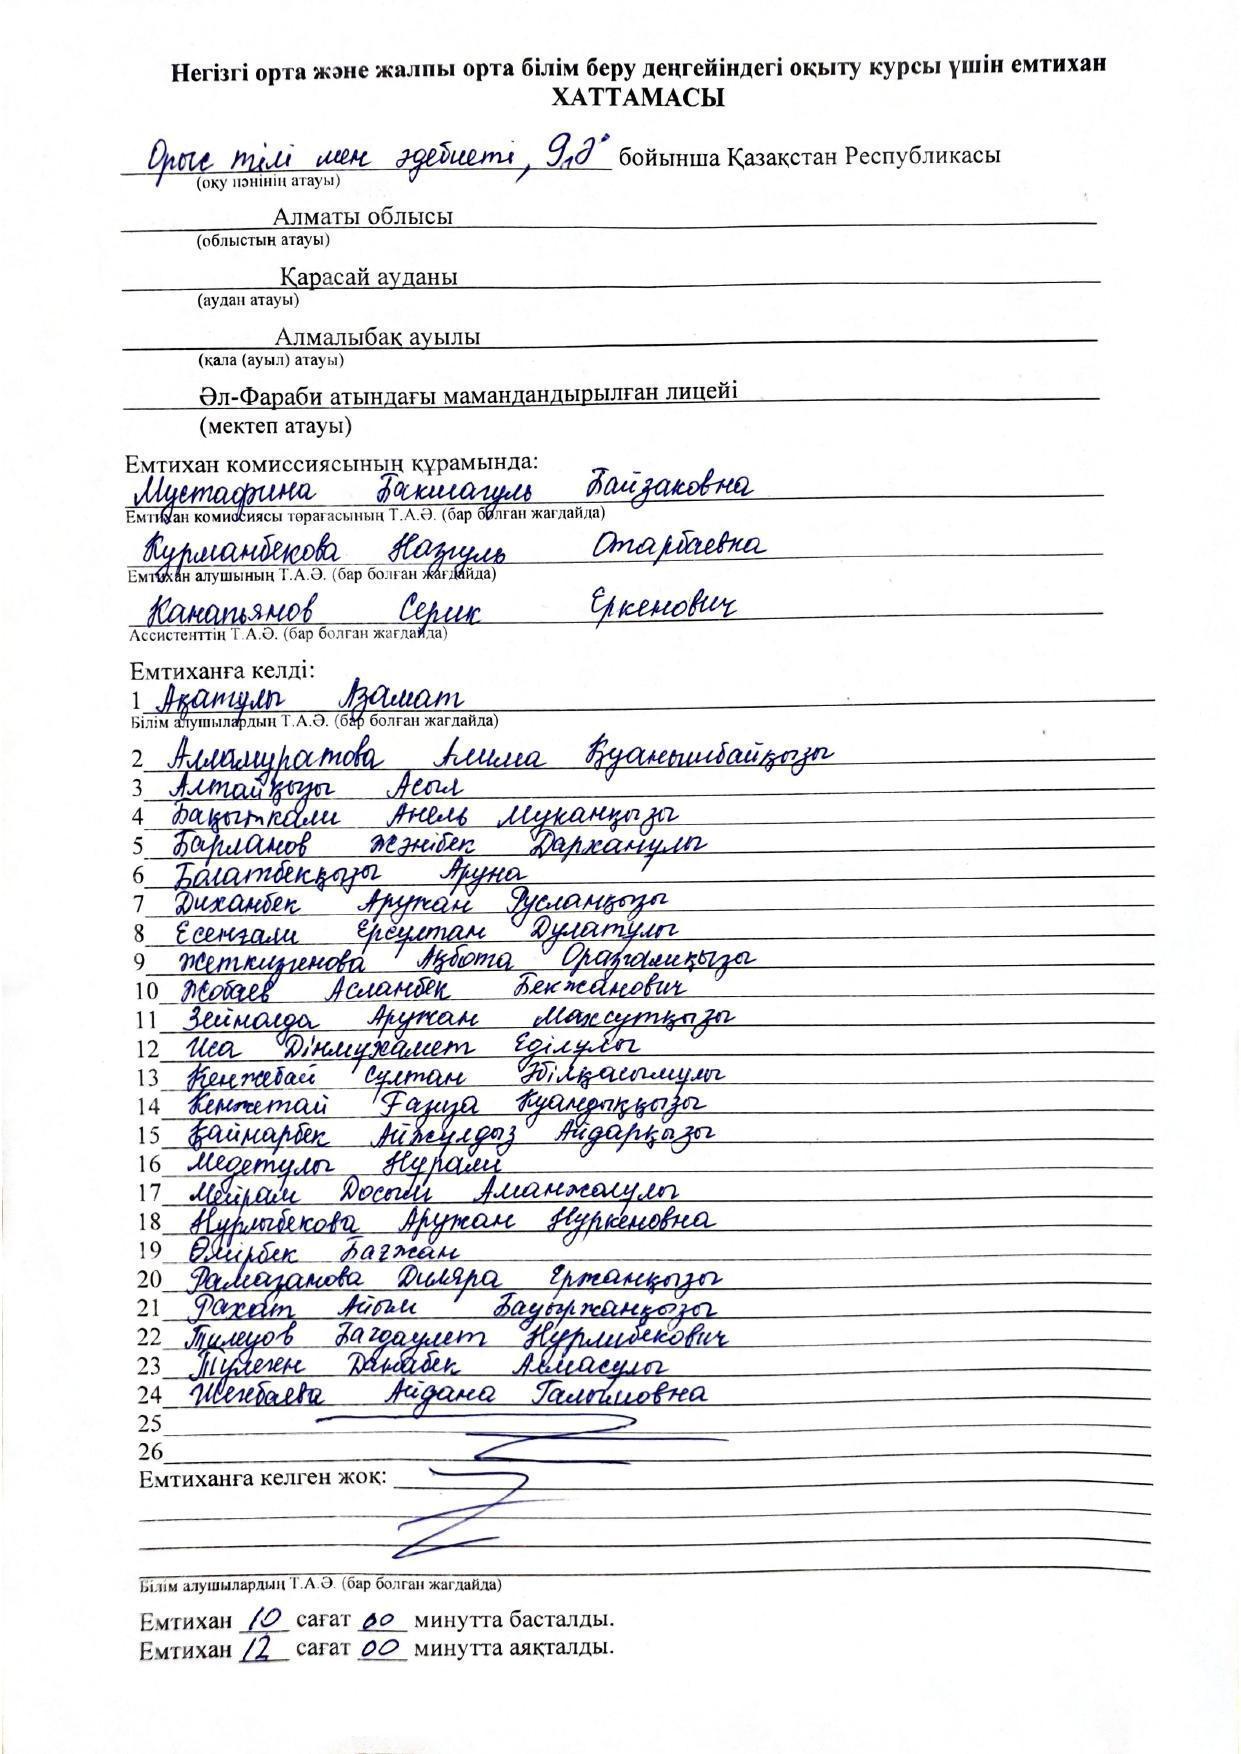 Негізгі орта және жалпы орта білім беру деңгейіндегі оқыту курсы үшін емтихан
ХАТТАМАСЫ
Орыс тілі мен әдебиеті, 9 „Ә" бойынша Қазақстан Республикасы
(оқу пәнінің атауы)
Алматы облысы
(облыстың атауы)
Қарасай ауданы
(аудан атауы)
Алмалыбақ ауылы
(қала (ауыл) атауы)
Әл-Фараби атындағы мамандандырылған лицейі
(мектеп атауы)
Емтихан комиссиясының құрамында:
Мустафина Бакшагуль Байзаковна
Емтихан комиссиясы төрағасының Т.А.Ә. (бар болған жағдайда)
Курманбекова Назгуль Отарбаевна
Емтихан алушының Т.А.Ә. (бар болған жағдайда)
Канапьянов Серик Еркенович
Ассистенттің Т.А.Ә. (бар болған жағдайда)
Емтиханға келді:
1 Ақатұлы Азамат
Білім алушылардың Т.А.Ә. (бар болған жағдайда)
2 Алламуратова Алима Қуанышбайқызы
3 Алтайқызы Асыл
4 Бақытқали Анель Муканқызы
5 Барланов Жәнібек Дарханұлы
6 Болатбекқызы Аруна
7 Диханбек Аружан Русланқызы
8 Есенғали Ерсұлтан Дулатұлы
9 Жеткизгенова Ақбота Оразғалиқызы
10 Жобаев Асланбек Бекжанович
11 Зейнолда Аружан Махсутқызы
12 Иса Дінмұхамет Еділұлы
13 Кенжебай Сұлтан Әбілқасымұлы
14 Кенжетай Ғазиза Қуандыққызы
15 Қайнарбек Айжұлдыз Айдарқызы
16 Медетұлы Нұрали
17 Мейрам Досым Аманжолұлы
18 Нурлыбекова Аружан Нуркеновна
19 Өмірбек Бағжан
20 Рамазанова Диляра Ержанқызы
21 Рахат Айым Бауыржанқызы
22 Тилеуов Багдаулет Нурлибекович
23 Төлеген Данабек Алмасұлы
24 Шенбаева Айдана Галымовна
25
26
Емтиханға келген жоқ:
Білім алушылардың Т.А.Ә. (бар болған жағдайда)
Емтихан 10 сағат 00 минутта басталды.
Емтихан 12 сағат 00 минутта аяқталды.